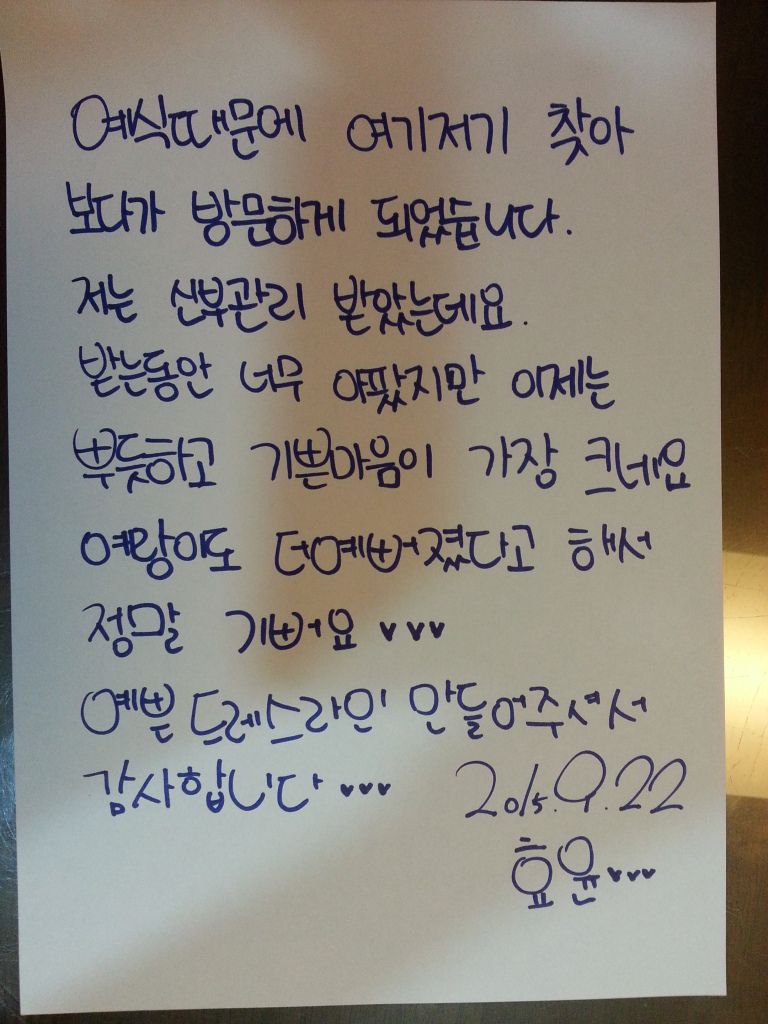 예식때문에 여기저기 찾아
보다가 방문하게 되었습니다.
저는 신부관리 받았는데요.
받는동안 너무 아팠지만 이제는
뿌듯하고 기쁜마음이 가장 크네요
예랑이도 더예뻐졌다고 해서
정말 기뻐요 ♥♥♥
예쁜 드레스라인 만들어주셔서
감사합니다 ♥♥♥ 2015.9.22
효윤 ♥♥♥